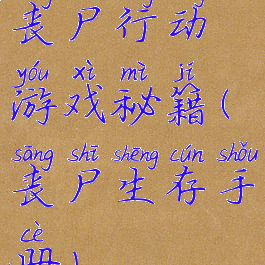 丧尸行动
yóu xì mì jí
游戏秘籍(
sāng shī shēng cún shǒu
丧尸生存手
cè
册)